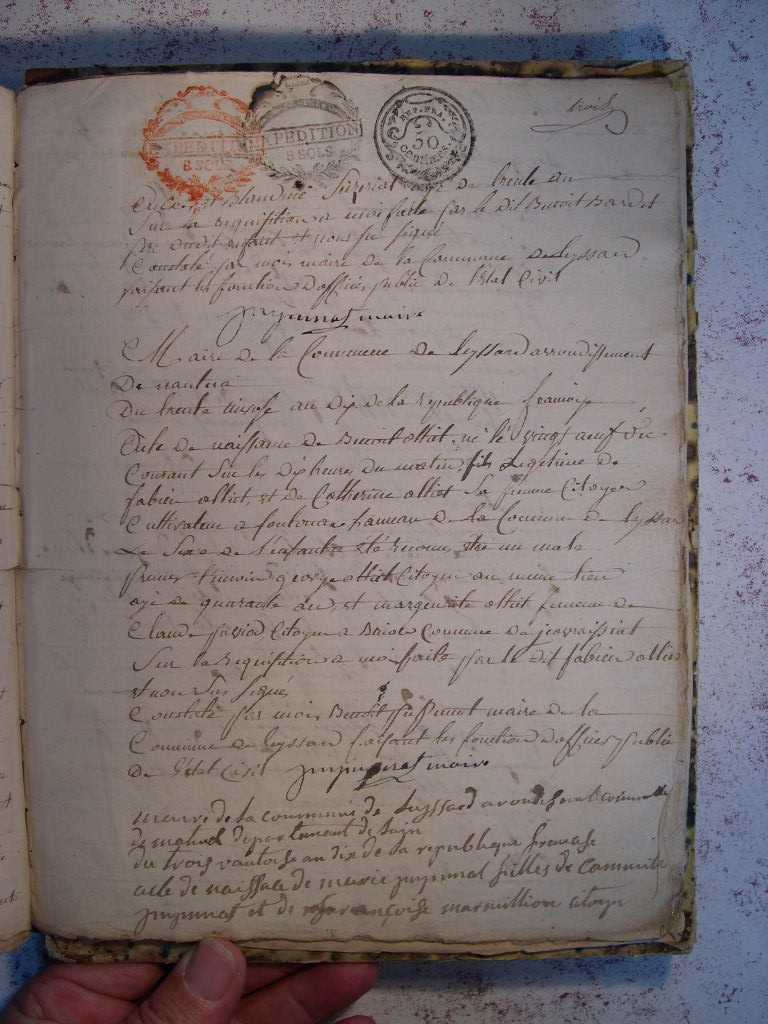 trois
EXPEDITION
8 SOLS
EXPEDITION
8 SOLS
REP. FRA.
50
centimes.
et Blandine de trente an
Sur la requisition a moi faite par le dit Benoit Bardet
pere dudit enfant et nous su signé
Constaté par mois maire de la Commune de Leyssard
faisant les fonction d'officier publié de l'état Civil
maire
Maire de la Commune de Leyssard arrondissement
De nantua
Du trente nivose an Dix de la republique francoise
acte de naissance de Benoit olliet né le vingt neuf du
Courant Sur les Dix heures Du matin, fils Legitime de
fabien olliet, et de Catherine olliet Sa femme Citoyen
Cultivateur a hameau de la Commune de Leyssard
Le Sexe de l'enfant a été reconu etre un male
premier temoin george olliet Citoyen au meme lieu
agé de quarante an, et marguerite olliet femme de
Claude Citoyen a Commune de
Sur la requisition a moi faite par le dit fabien olliet
et non Su Signé
Constaté par mois Benoit maire de la
Commune de Leyssard faisant les fonction d'officier publié
De l'état Civil maire
mairie de la commune de Leyssard arondisement
de departement de lain
du trois vantose an dix de la republique francaise
acte de naissase de marie filles de
et de francoise marmillion citoyen